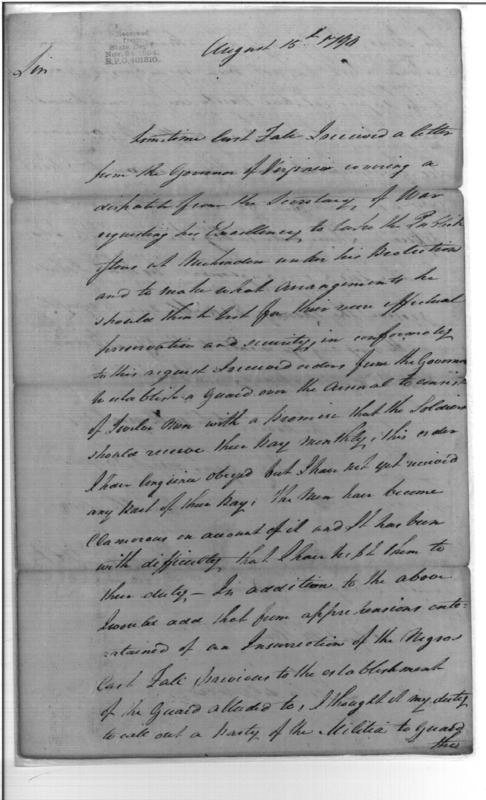 Received
from
State Dept
Nov. 2, 1894,
R.P.O. 401810.
August 15th 1794
Sir
Sometime last Fall I received a letter
from the Governor of Virginia covering a
dispatch from the Secretary of War
requesting his Excellency to take the Publick
Stores at Newlondon under his Protection
and to make what arrangements he
should think best for their more effectual
preservation and security, in conformity
to this request I received orders from the Governor
to establish a Guard over the Arsenal to consist
of Twelve Men with a promise that the Soldiers
should receive their Pay monthly; this order
I have long since obeyed but I have not yet received
any Part of their Pay; The Men have become
Clamorous on account of it and It has been
with difficulty that I have kept them to
their duty – In addition to the above
I would add that from apprehensions ente=
=rtained of an Insurrection of the Negros
last Fall, previous to the establishment
of the Guard alluded to, I thought it my duty
to call out a Party of the Militia to Guard
the